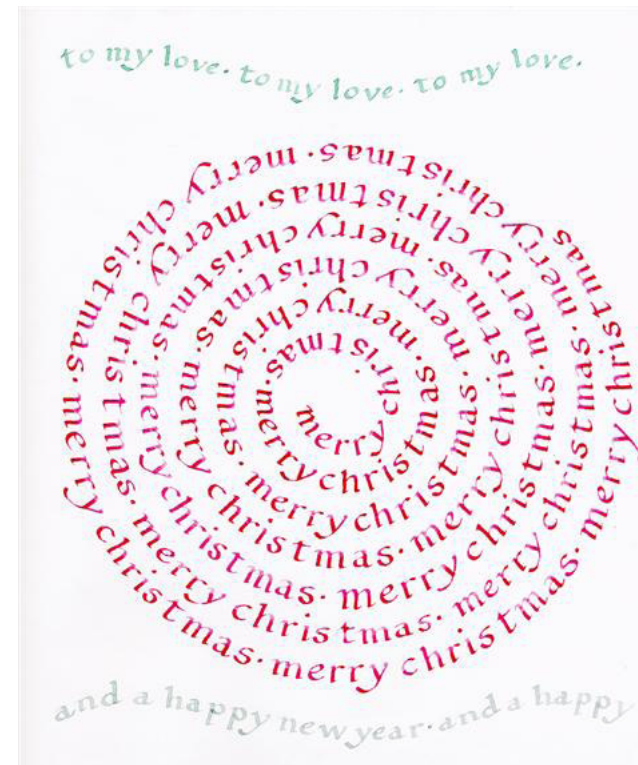 to my love· to my love· to my love·
merry christmas· merry christmas· merry christmas· merry christmas· merry christmas· merry christmas· merry christmas· merry christmas· merry christmas· merry christmas· merry christmas· merry christmas· merry christmas· merry christmas· merry christmas· merry christmas· merry christmas· merry christmas· merry christmas
and a happy new year·and a happy